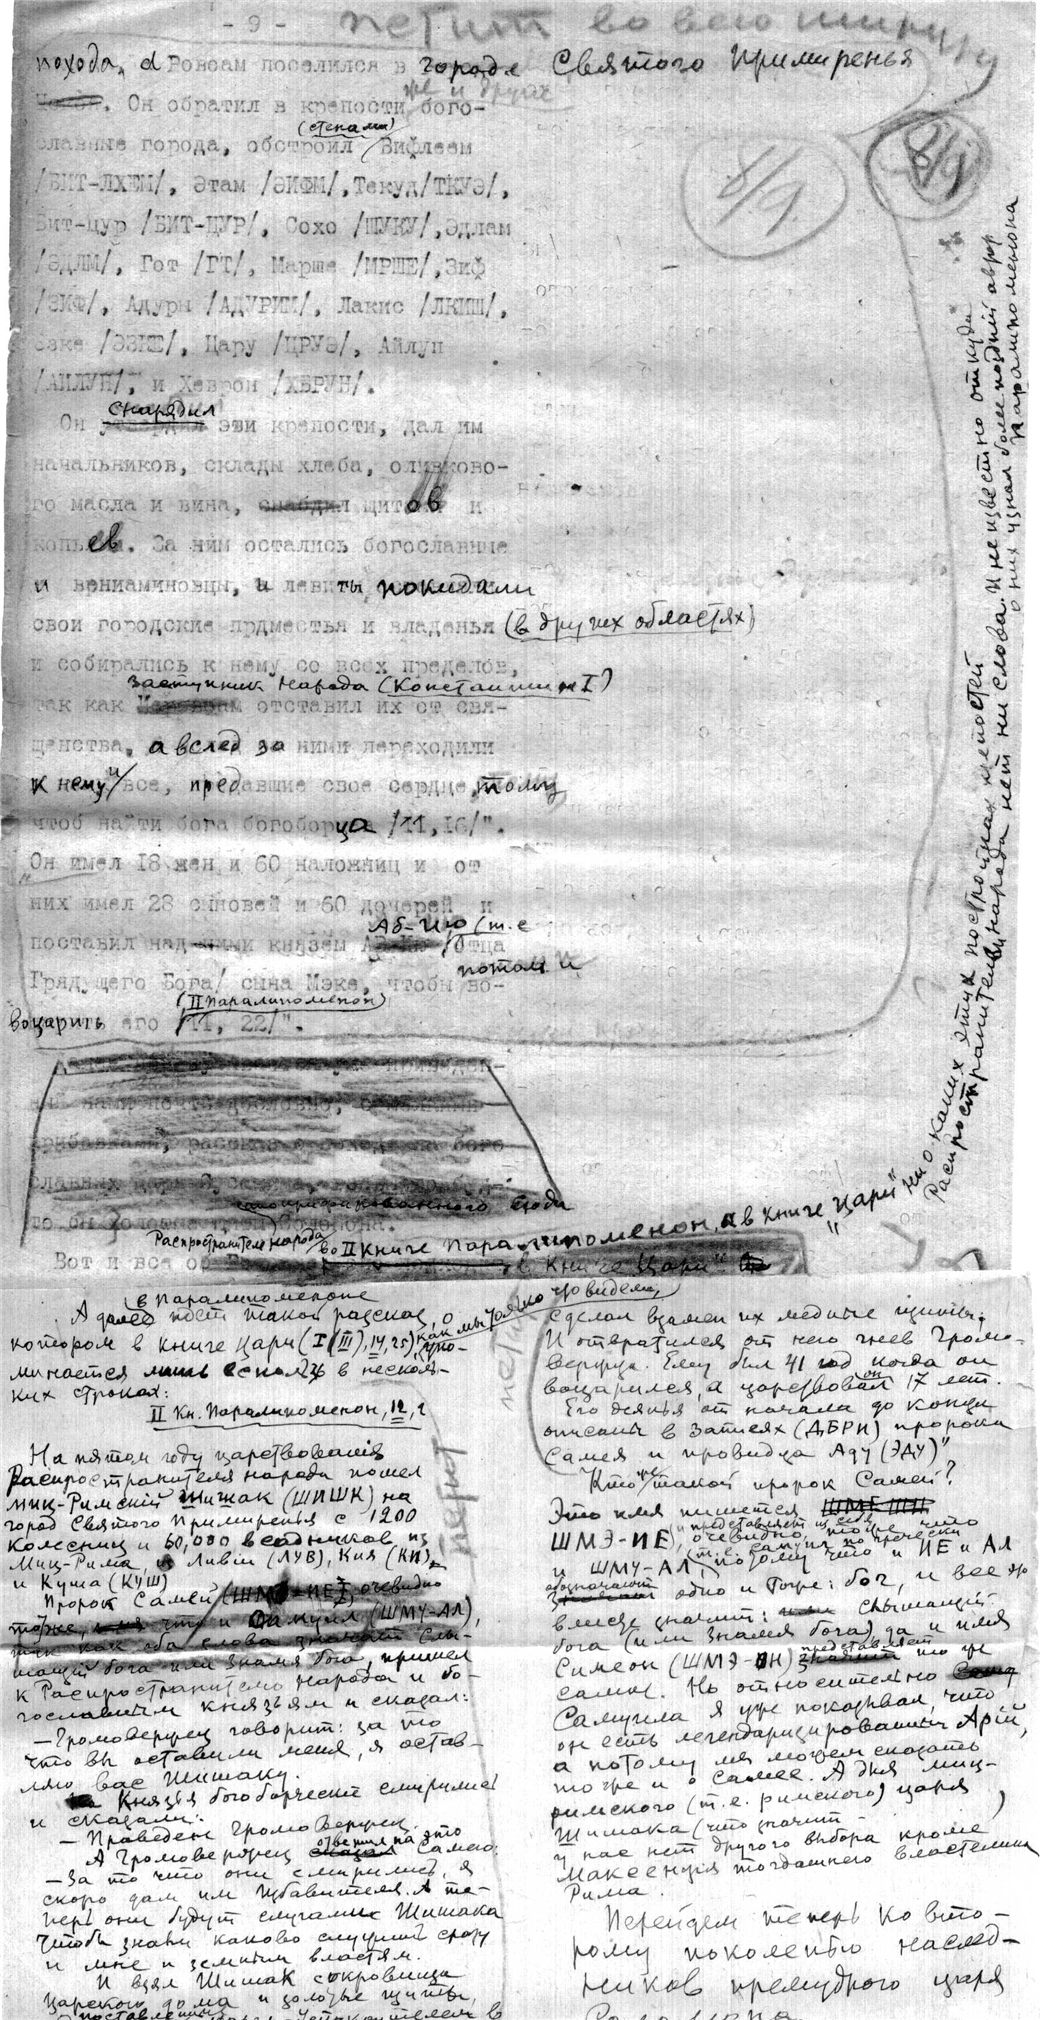 - 9 -
петит во всю ширину
похода. А Ровоам поселился в городе Святого Примиренья
же и другие
. Он обратил в крепости бого-
(стенами)
славные города, обстроил Вифлеем
/БИТ-ЛХЕМ/, Этам /ЭИФМ/, Текуд/ТКУЭ/,
Бит-Цур /БИТ-ЦУР/, Сохо /ШУКУ/, Эдлам
/ЭДЛМ/, Гот /ГТ/, Марше /МРШЕ/, Зиф
/ЗИФ/, Адуры /АДУРИМ/, Лакис /ЛКИШ/,
/ЭЗКЕ/, Цару /ЦРУЭ/, Айлун
/АИЛУН/, и Хеврон /ХБРУН/.
снарядил
Он эти крепости, дал им
начальников, склады хлеба, оливково-
го масла и вина, снабдил щитов и
копьев. За ним остались богославные
и вениаминовцы, и левиты покидали
свои городские прдместья и владенья (в других областях)
и собирались к нему со всех пределов,
заступник народа (Константин I)
так как отставил их от свя-
щенства, а вслед за ними переходили
к нему и все, предавшие свое сердце тому
чтоб найти бога богоборца /11,16/".
"Он имел 18 жен и 60 наложниц и от
них имел 28 сыновей и 60 дочерей и
Аб-Ию (т.е
поставил над ними князем Отца
потом и
Грядущего Бога/ сына Мэке, чтобы во-
(II Паралипоменон)
воцарить его /11, 22/".
8/9
8/9
Вот и все
Распространителе народа
во II книге Паралипоменон, а в книге "Цари" ни о каких этих постройках крепостей
Распространителем народа нет ни слова. И неизвестно откуда
о них узнал более поздний автор
Паралипоменона
в Паралипоменоне
А далее идет такой рассказ, о
котором в книге Цари (I (III), 14, 25), как мы только что видели, упо-
минается лишь в несколь-
ких строках:
II Кн. Паралипоменон, 12, 2
На пятом году царствования
Распространителя народа пошел
миц-Римский Шишак (ШИШК) на
город Святого Примиренья с 1200
колесниц и 60,000 всадников из
Миц-Рима, Ливии (ЛУВ), Кия (КИ)
и Куша (КУШ)
Пророк Самей (ШМЭ-ИЕ), очевидно
тоже, что и Самуил (ШМУ-АЛ),
так как оба слова значат Слы-
шащий бога или Знамя бога, пришел
к Распространителю народа и бо-
гославным князьям и сказал:
— Громовержец говорит: за то
что вы оставили меня, я остав-
ляю вас Шишаку.
Князья богоборческие смирились
и сказали:
— Праведен Громовержец.
А Громовержец ответил на это Самею:
— За то что они смирились, я
скоро дам им избавителя. А те-
перь они будут слугами Шишака
чтобы знали каково служить сразу
и мне и земным властям.
И взял Шишак сокровища
царского дома и золотые щиты,
петит
петит
сделал взамен их медные щиты.
И отвратился от него гнев Громо-
вержца. Ему был 41 год когда он
воцарился, а царствовал он 17 лет.
Его деянья от начала до конца
описаны в Записях (ДБРИ) пророка
Самея и провидца Аду (ЭДУ)"
Кто же такой пророк Самей?
Это имя пишется
ШМЭ-ИЕ, и представляет из себя, очевидно, то же, что
и ШМУ-АЛ, (т.е. Самуил по-гречески) потому что и ИЕ и АЛ
обозначают одно и тоже: бог, и все это
вместе значит: слышащий
бога (или Знамя бога), да и имя
Симеон (ШМЭ-УН) представляет то же
самое. Но относительно
Самуила я уже показывал, что
он есть легендаризированный Арий,
а потому мы можем сказать
то же и о Самее. А для миц-
римского (т.е. римского) царя
Шишака (что значит )
у нас нет другого выбора кроме
Максенция тогдашнего властелина
Рима.
Перейдем теперь ко вто-
рому поколенью наслед-
ников премудрого царя